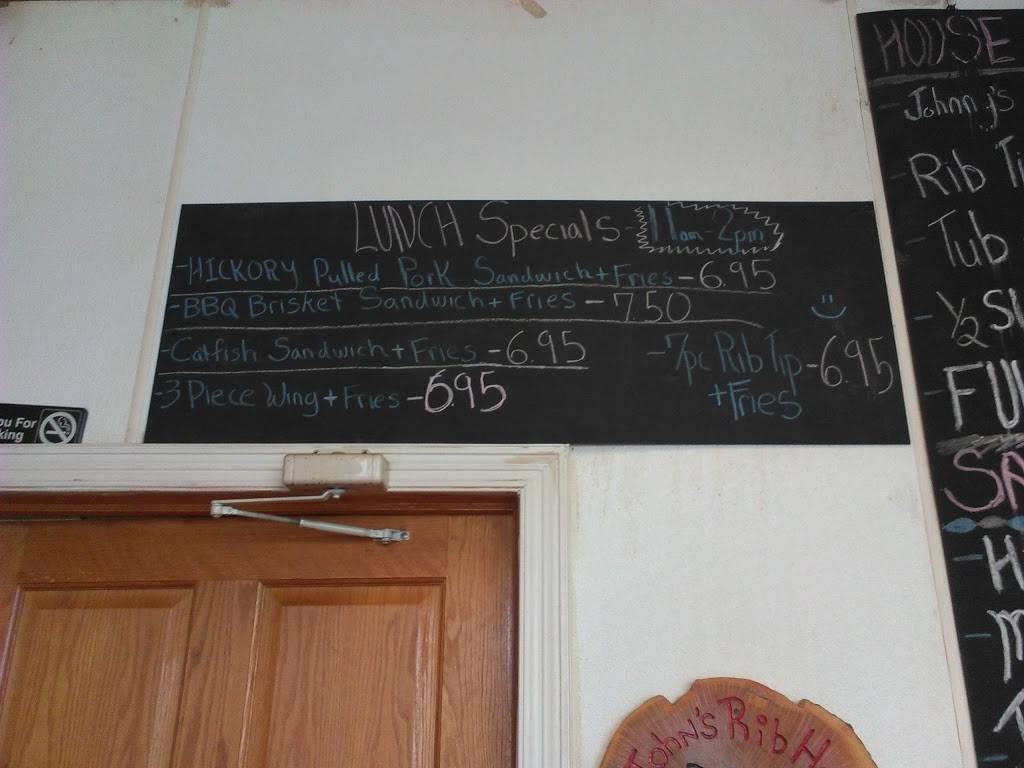 LUNCH Specials - 11am-2pm
-HICKORY Pulled Pork Sandwich + Fries - 6.95
-BBQ Brisket Sandwich + Fries - 7.50
-Catfish Sandwich + Fries - 6.95
-3 Piece Wing + Fries - 695
-7pc Rib Tip - 6.95
+Fries
HOUSE
- Johnny's
- Rib
- Tub
- 1/2
-
-
-
ou For
king
John's Rib H